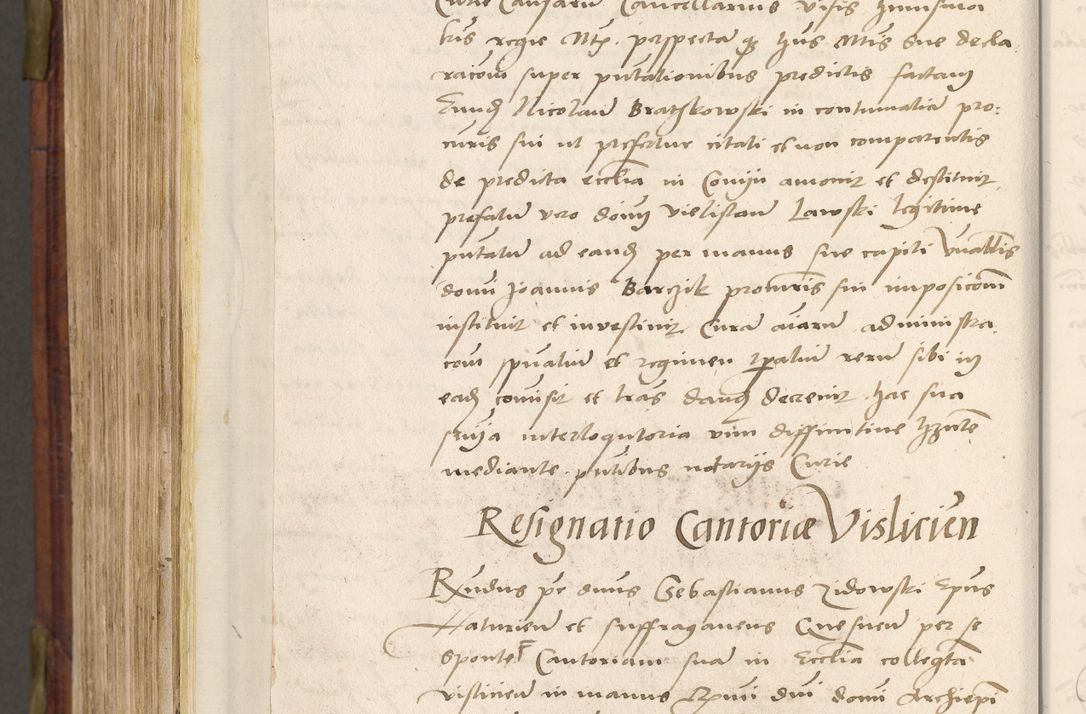 Curie Causarum Cancellarius visis huiusmodi
tris regie Mtis perspecta qz hus Mtis sue decla
raconi super putationibus predictis factam
Eund Nicolaum Bratskowski in contumatia pro:
curis sui ut prefertur citati et non comparentis
de predicta ecclia in Coniju amouit et destituit
prefatum vero donum Vielislaum Lawski legitime
putatum ad eand per manus sue capiti
domini Joannis Barczik procuris sui imposiconem
instituit et inuestiuit Curam aiarum administra
com spualium et regimen tpalium rerum sibi in
ead comisit et tras dand decreuit hac sua
snija interloqutoria vim diffinitiue hnte
mediante putibus notarijs Curie
Resignatio Cantoriæ Visliciēn
Rxndus pr dnus Sebastianus Zidowski Epus
Naturien et suffraganeus Gnesnen per se
sponte Cantoriam suam in Ecclia collegta
vislicien in manus Rxmi dni domi Archiepi